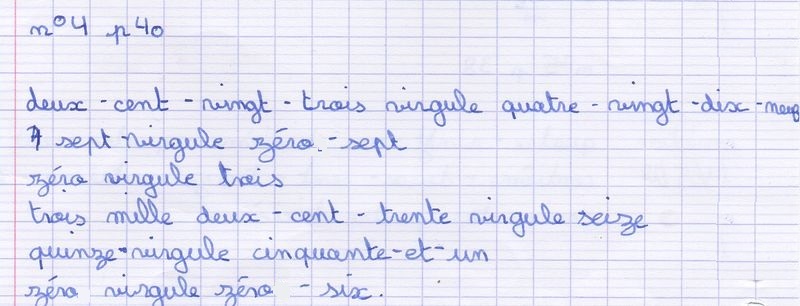 n°4 p40
deux-cent-vingt-trois virgule quatre-vingt-dix-neuf
sept virgule zéro-sept
zéro virgule trois
trois mille deux-cent-trente virgule seize
quinze-virgule cinquante-et-un
zéro virgule zéro-six.